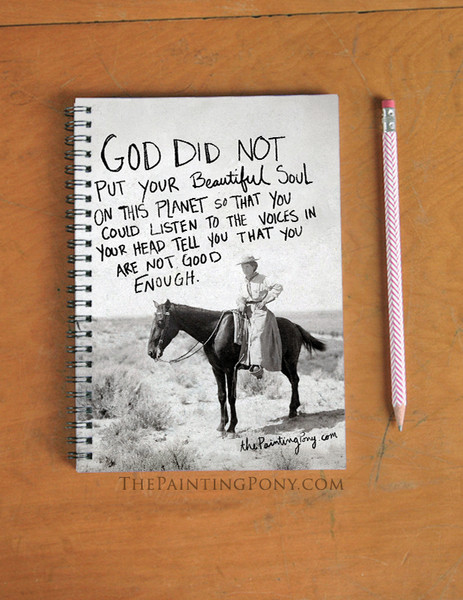 GOD DID NOT
PUT YOUR Beautiful SOUL
ON THIS PLANET SO THAT YOU
COULD LISTEN TO THE VOICES IN
YOUR HEAD TELL YOU THAT YOU
ARE NOT GOOD
ENOUGH.
thePaintingPony.com
THEPAINTINGPONY.COM